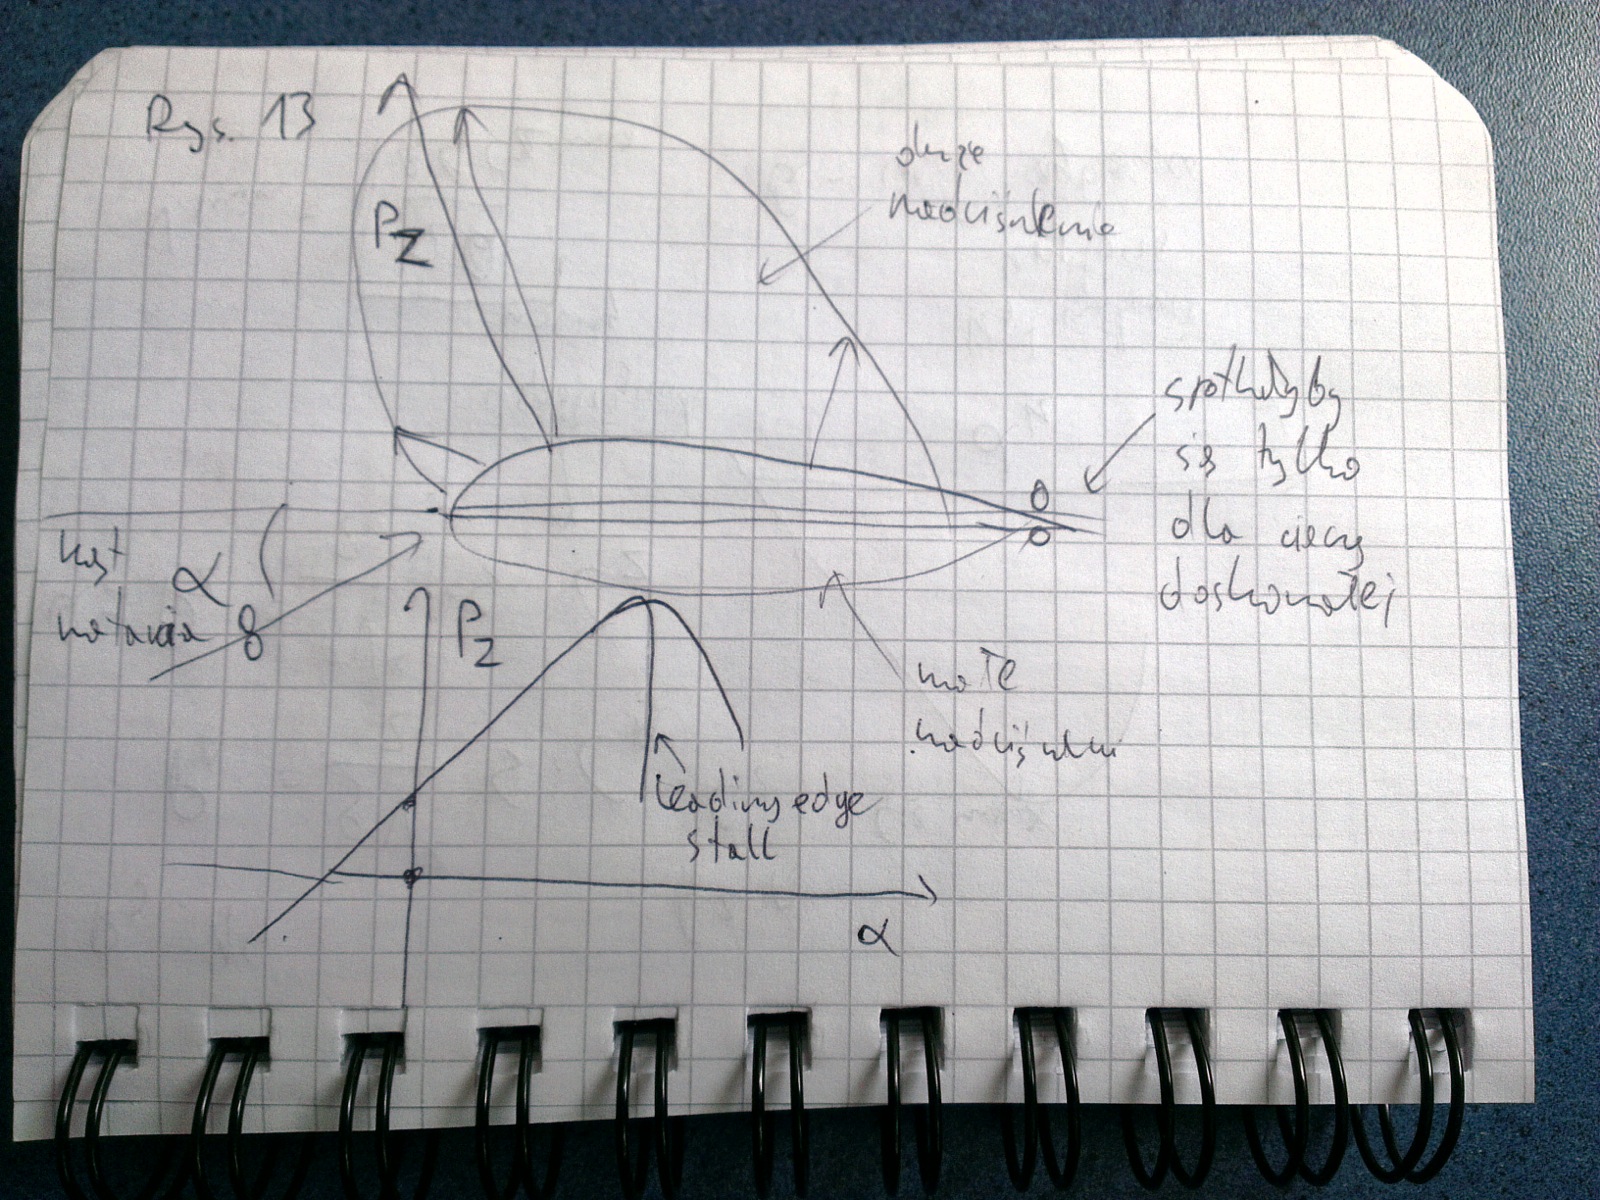 Rys. 13
Pz
duże
nadciśnienie
spotkałyby
się tylko
dla cieczy
doskonałej
0
0
kąt
α
natarcia
Pz
małe
leading edge
stall
α